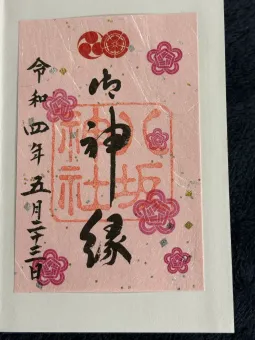 御神縁
八坂
神社
令和四年五月二十三日